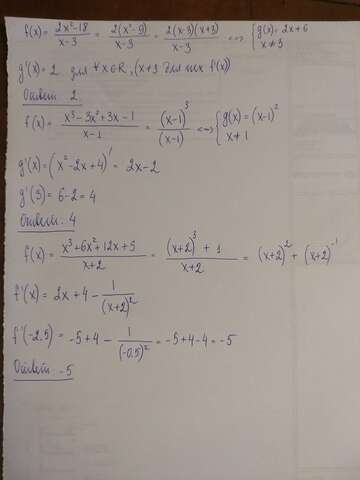 f(x) = (2x²-18)/(x-3) = 2(x²-9)/(x-3) = 2(x-3)(x+3)/(x-3) <=> { g(x) = 2x+6 x≠3
g'(x) = 2 для ∀x∈R, (x≠3 для
Ответ 2
f(x) = (x³-3x²+3x-1)/(x-1) = (x-1)³/(x-1) <=> { g(x) = (x-1)² x≠1
g'(x) = (x²-2x+4)' = 2x-2
g'(3) = 6-2 = 4
Ответ: 4
f(x) = (x³+6x²+12x+5)/(x+2) = ((x+2)³+1)/(x+2) = (x+2)² + (x+2)⁻¹
f'(x) = 2x+4 - 1/(x+2)²
f'(-2.5) = -5+4 - 1/(-0.5)² = -5+4-4 = -5
Ответ -5